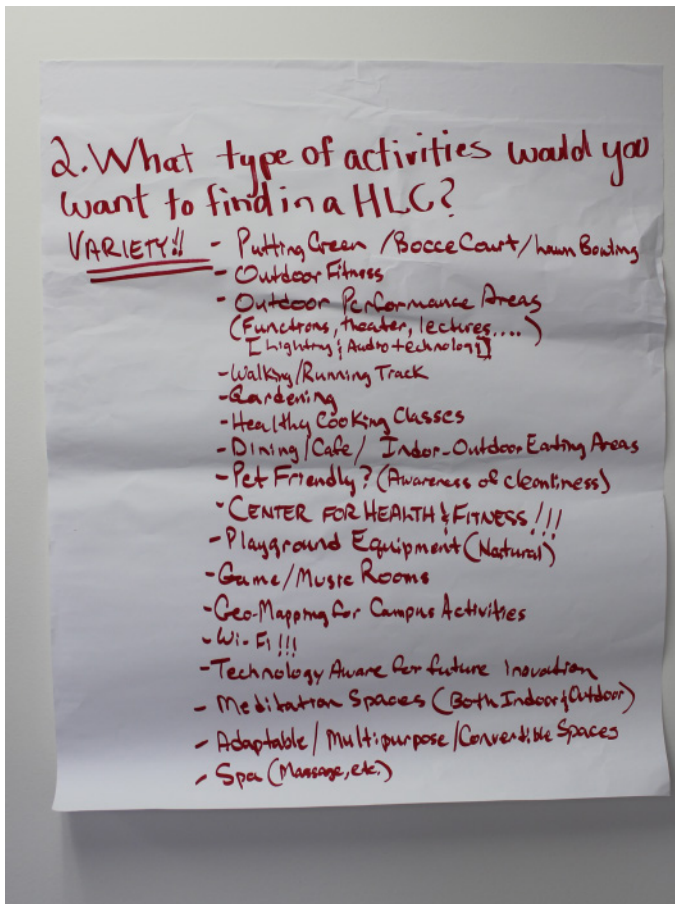 2. What type of activities would you
want to find in a HLC?
VARIETY!! - Putting Green / Bocce Court / Lawn Bowling
- Outdoor Fitness
- Outdoor Performance Areas
(Functions, theater, lectures....)
[Lighting & Audio technology]
- Walking/Running Track
- Gardening
- Healthy Cooking Classes
- Dining / Cafe / Indor-Outdoor Eating Areas
- Pet Friendly? (Awareness of cleanliness)
- CENTER FOR HEALTH & FITNESS!!!
- Playground Equipment (Natural)
- Game/Music Rooms
- Geo-Mapping for Campus Activities
- Wi-Fi!!!
- Technology Aware for future Inovation
- Meditation Spaces (Both Indoor & Outdoor)
- Adaptable / Multipurpose / Convertible Spaces
- Spa (Massage, etc.)